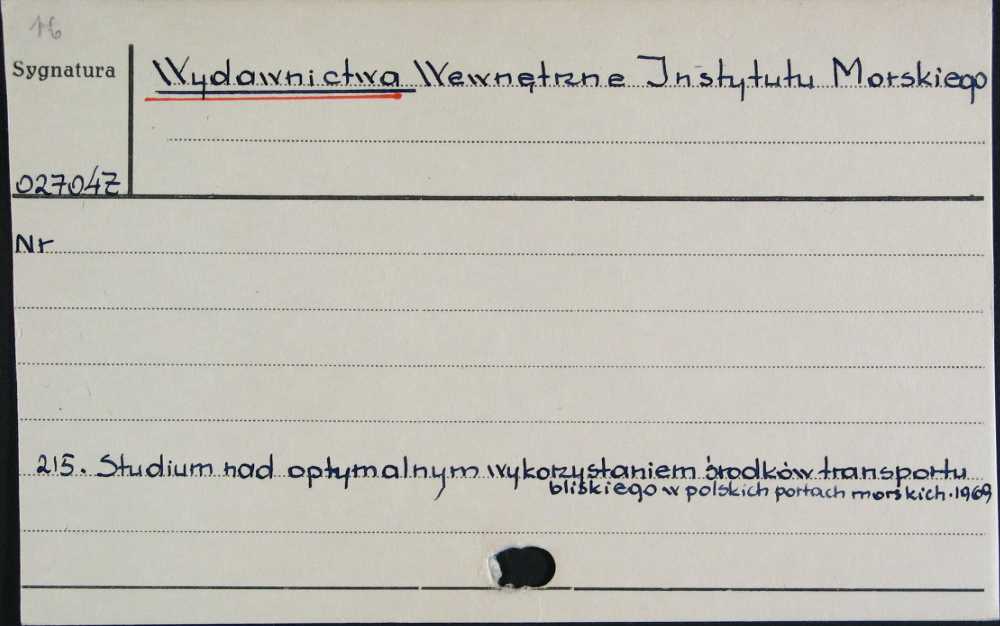 16
Sygnatura
Wydawnictwa Wewnętrzne Instytutu Morskiego
02704Z
Nr
215. Studium nad optymalnym wykorzystaniem środków transportu
bliskiego w polskich portach morskich. 1969